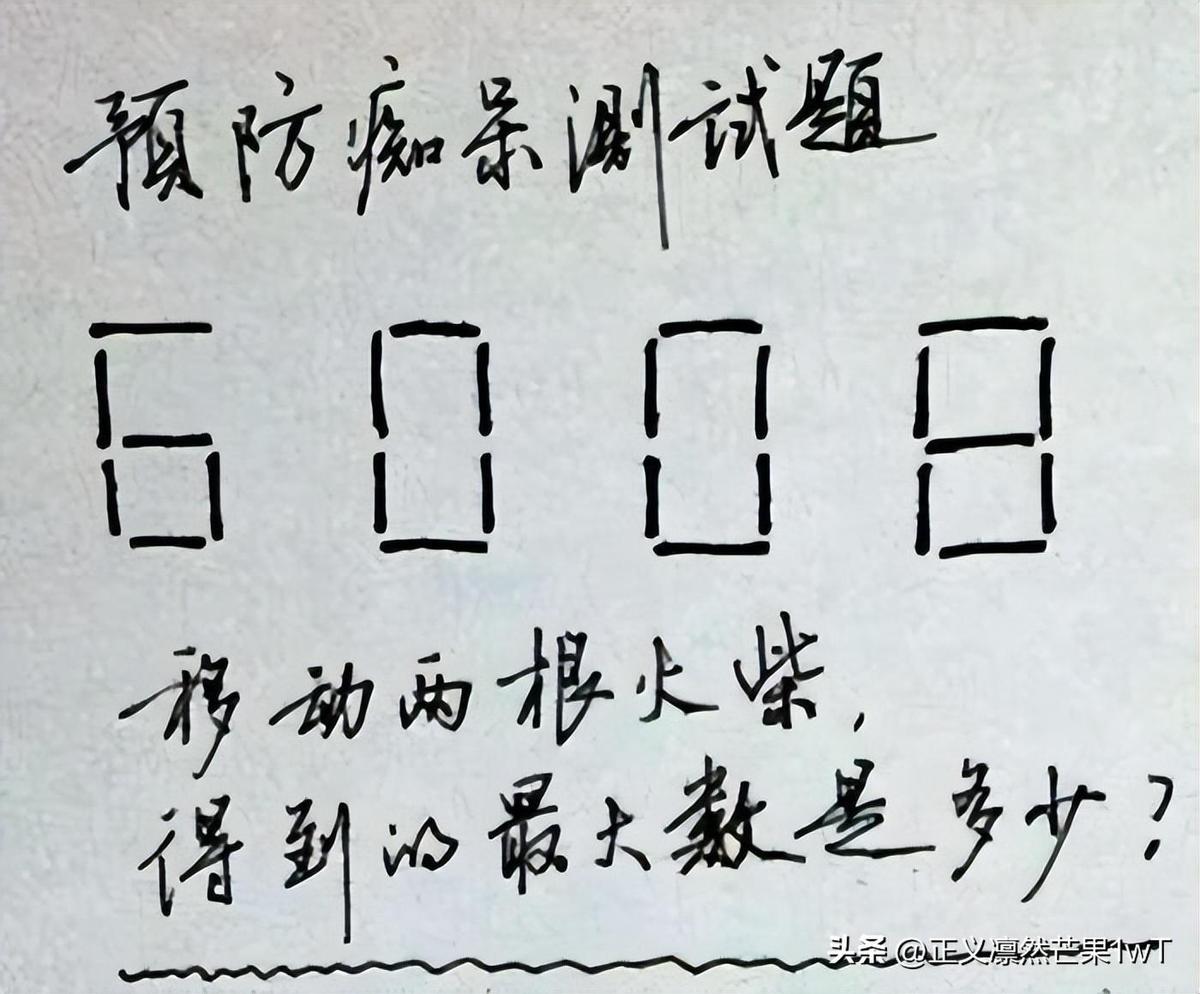 预防痴呆测试题
6008
移动两根火柴，
得到的最大数是多少？
头条 @正义凛然芒果1wT